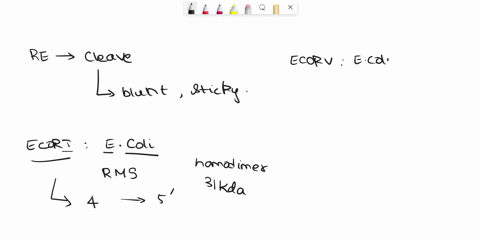 RE → Cleave
ECORV : E.Coli
↳ blunt , sticky.
ECORI : E.Coli
RMS
homodimer
31kda
↳ 4 → 5'